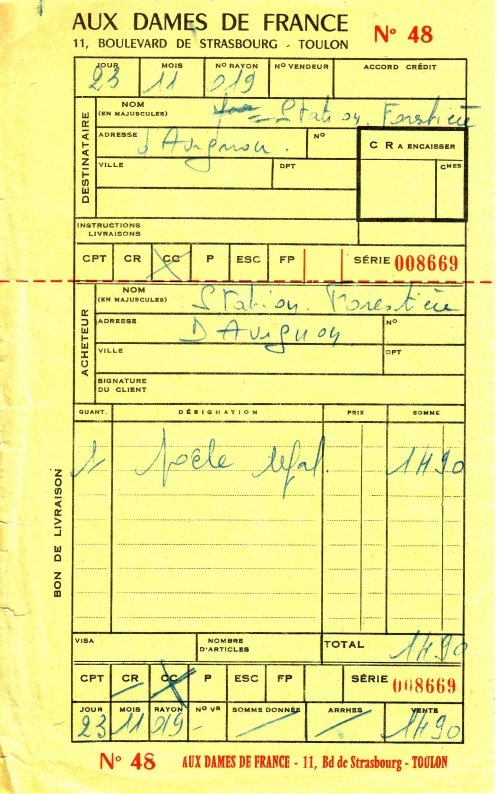 AUX DAMES DE FRANCE
11, BOULEVARD DE STRASBOURG - TOULON
N° 48
JOUR MOIS N° RAYON N° VENDEUR ACCORD CRÉDIT
23 11 019
DESTINATAIRE
NOM
(EN MAJUSCULES)
Station Forestière
ADRESSE N°
d'Avignon.
C R A ENCAISSER
CMES
VILLE DPT
INSTRUCTIONS
LIVRAISONS
CPT CR CC P ESC FP SÉRIE 008669
ACHETEUR
NOM
(EN MAJUSCULES)
Station Forestière
ADRESSE N°
D'Avignon
VILLE DPT
SIGNATURE
DU CLIENT
BON DE LIVRAISON
QUANT. DÉSIGNATION PRIX SOMME
1 poële 1490
VISA NOMBRE
D'ARTICLES
TOTAL 1490
CPT CR CC P ESC FP SÉRIE 008669
JOUR MOIS RAYON N° VR SOMME DONNÉE ARRHES VENTE
23 11 019 - 1490
N° 48 AUX DAMES DE FRANCE - 11, Bd de Strasbourg - TOULON